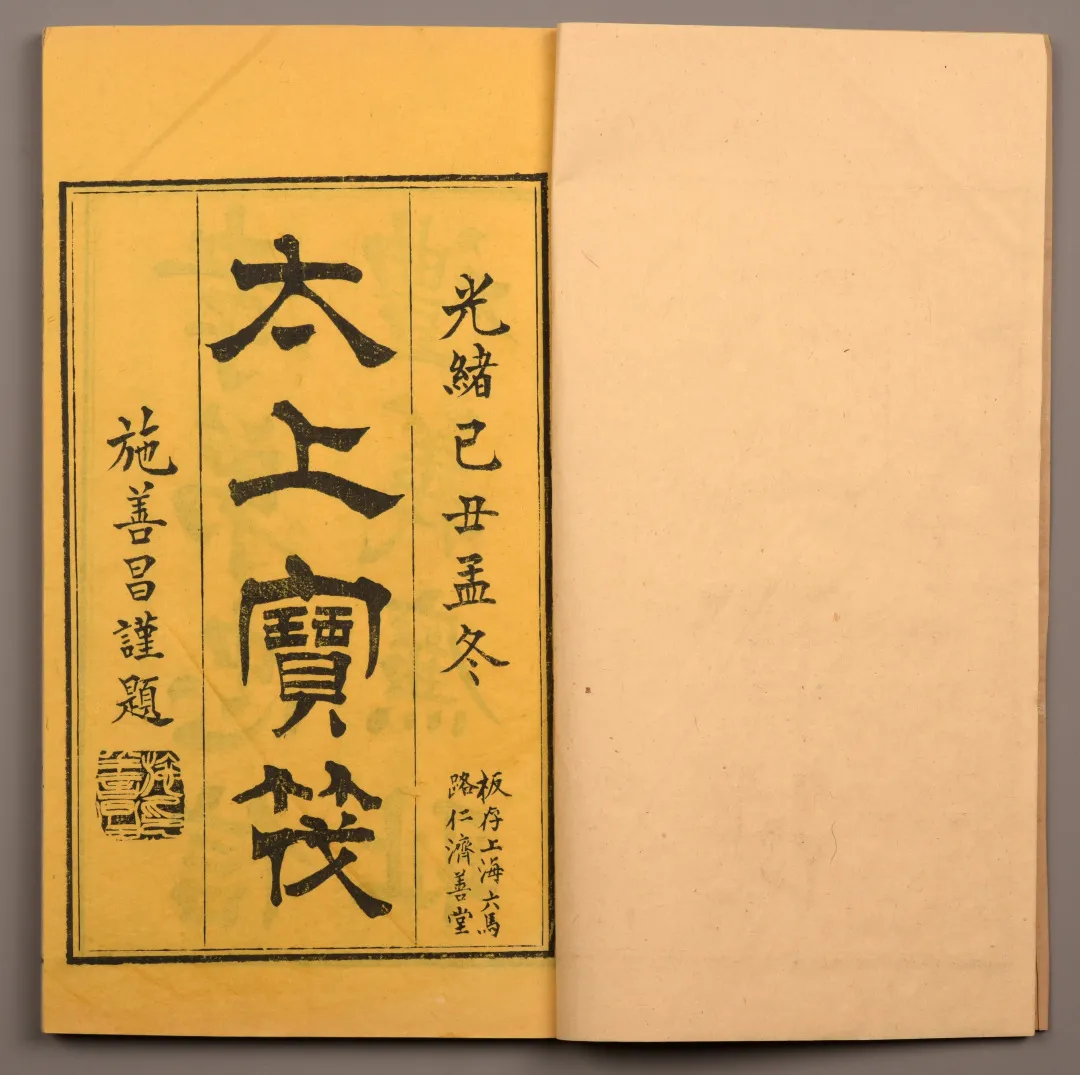 光緒己丑孟冬
板存上海六馬
路仁濟善堂
太上寶筏
施善昌謹題